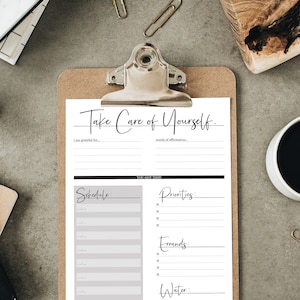 Take Care of Yourself.
I am grateful for...
words of affirmation...
Schedule
Priorities:
Errands
Water: